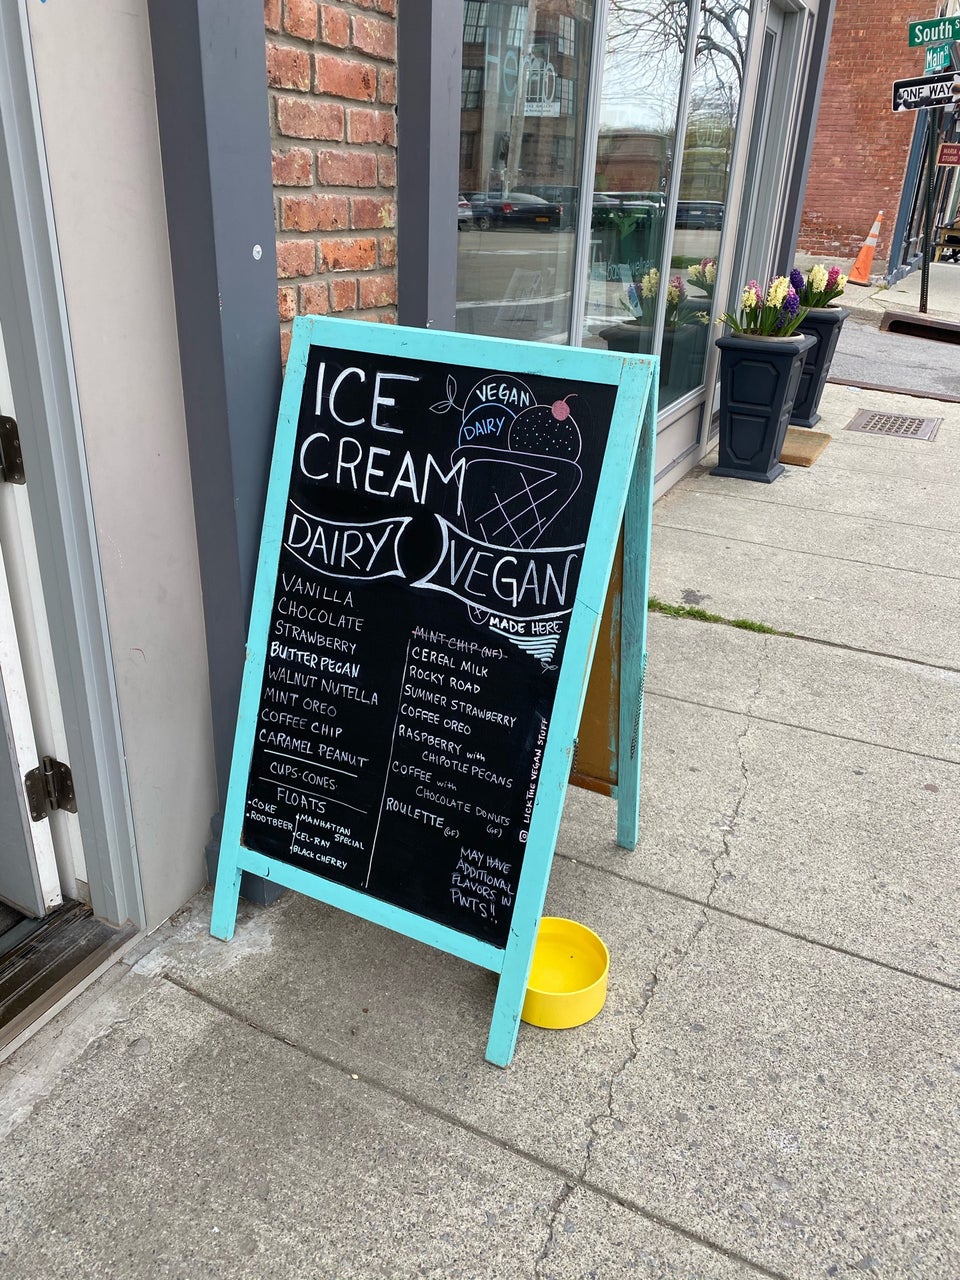 ICE
CREAM
VEGAN
DAIRY
DAIRY
VANILLA
CHOCOLATE
STRAWBERRY
BUTTER PECAN
WALNUT NUTELLA
MINT OREO
COFFEE CHIP
CARAMEL PEANUT
CUPS·CONES
FLOATS
•COKE
•ROOTBEER
•MANHATTAN
SPECIAL
•CEL-RAY
•BLACK CHERRY
VEGAN
MADE HERE
MINT CHIP (NF)
CEREAL MILK
ROCKY ROAD
SUMMER STRAWBERRY
COFFEE OREO
RASPBERRY with
CHIPOTLE PECANS
COFFEE with
CHOCOLATE DONUTS
(GF)
ROULETTE (GF)
LICKTHEVEGANSTUFF
MAY HAVE
ADDITIONAL
FLAVORS IN
PINTS!!
South S
Main St
ONE WAY
MARIA
STUDIO